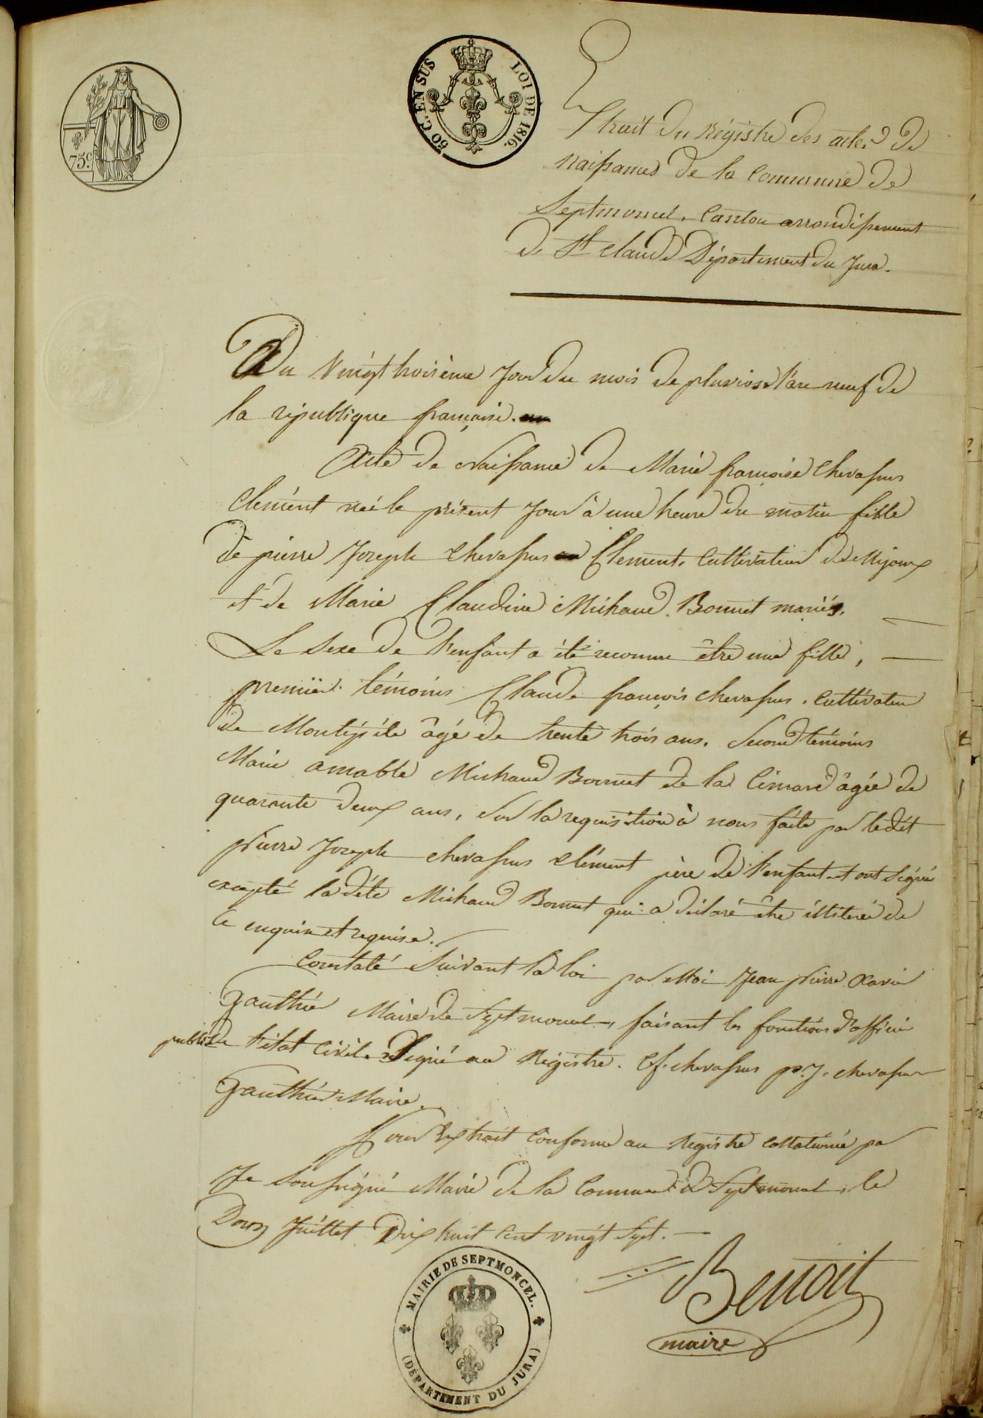 75c.
50 C. EN SUS LOI DE 1816.
Extrait du Régistre des actes de
naissances de la Commune de
Septmoncel, Canton arrondissement
de St Claude Département du Jura.
Du vingt troisième Jour du mois de pluviose l'an neuf de
la république française.
Acte de Naissance de Marie françoise Chevassus
Clément née le présent Jour à une heure du matin fille
de pierre Joseph Chevassus Clément, Cultivateur de Mijoux
et de Marie Claudine Michaud Bonnet mariés.
Le sexe de l'enfant a été reconnu être une fille,
premier témoins Claude françois Chevassus, Cultivateur
de Montépile âgé de trente trois ans, Second témoins
Marie amable Michaud Bonnet de la Simard âgée de
quarante deux ans, Sur la requisition à nous faite par le dit
pierre Joseph Chevassus Clément père de l'enfant et ont signé
excepté la dite Michaud Bonnet qui a déclaré être illitérée de
ce enquise et requise.
Constaté Suivant la loi par Moi Jean pierre Xavier
Gauthier Maire de Septmoncel, faisant les fonctions d'officier
public de l'état Civil. Signé au Régistre. Cf. chevassus p. J. chevassus
Gauthier Maire.
Pour Extrait Conforme au Registre Collationné par
Je Soussigné Maire de la Commune de Septmoncel, le
Douze Juillet Dix huit cent vingt Sept.
Benoit
maire
MAIRIE DE SEPTMONCEL.
(DÉPARTEMENT DU JURA)